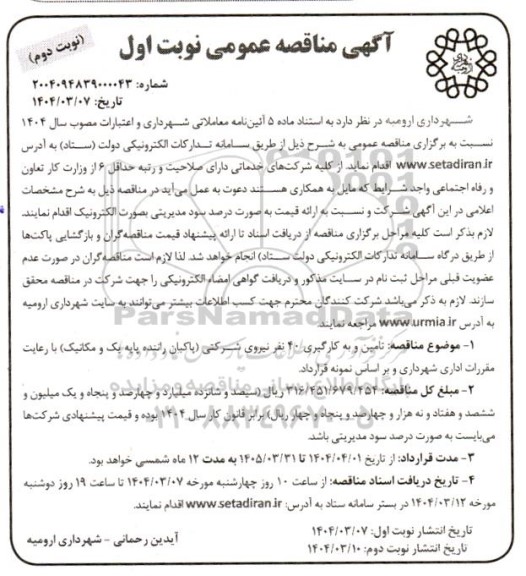 آگهی مناقصه عمومی نوبت اول
(نوبت دوم)
شماره: ۲۰۰۴۰۹۴۸۳۹۰۰۰۰۴۳
تاریخ: ۱۴۰۴/۰۳/۰۷
شهرداری ارومیه در نظر دارد به استناد ماده ۵ آئین‌نامه معاملاتی شهرداری و اعتبارات مصوب سال ۱۴۰۴
نسبت به برگزاری مناقصه عمومی به شرح ذیل از طریق سامانه تدارکات الکترونیکی دولت (ستاد) به آدرس
www.setadiran.ir اقدام نماید. از کلیه شرکت‌های خدماتی دارای صلاحیت و رتبه حداقل ۶ از وزارت کار تعاون
و رفاه اجتماعی واجد شرایط که مایل به همکاری هستند دعوت به عمل می‌آید در مناقصه ذیل به شرح مشخصات
اعلامی در این آگهی شرکت و نسبت به ارائه قیمت به صورت درصد سود مدیریتی بصورت الکترونیک اقدام نمایند.
لازم بذکر است کلیه مراحل برگزاری مناقصه از دریافت اسناد تا ارائه پیشنهاد قیمت مناقصه‌گران و بازگشایی پاکت‌ها
از طریق درگاه سامانه تدارکات الکترونیکی دولت ستاد) انجام خواهد شد. لذا لازم است مناقصه‌گران در صورت عدم
عضویت قبلی مراحل ثبت نام در سایت مذکور و دریافت گواهی امضاء الکترونیکی را جهت شرکت در مناقصه محقق
سازند. لازم به ذکر می‌باشد شرکت کنندگان محترم جهت کسب اطلاعات بیشتر می‌توانند به سایت شهرداری ارومیه
به آدرس www.urmia.ir مراجعه نمایند.
۱- موضوع مناقصه: تأمین و به کارگیری ۴۰ نفر نیروی شرکتی (پاکبان راننده پایه یک و مکانیک) با رعایت
مقررات اداری شهرداری و بر اساس نمونه قرارداد.
۲- مبلغ کل مناقصه: ۳۱۶/۴۵۱/۶۷۹/۴۵۴ ریال (سیصد و شانزده میلیارد و چهارصد و پنجاه و یک میلیون و
ششصد و هفتاد و نه هزار و چهارصد و پنجاه و چهار ریال) برابر قانون کار سال ۱۴۰۴ بوده و قیمت پیشنهادی شرکت‌ها
می‌بایست به صورت درصد سود مدیریتی باشد.
۳- مدت قرارداد: از تاریخ ۱۴۰۴/۰۴/۰۱ تا ۱۴۰۵/۰۳/۳۱ به مدت ۱۲ ماه شمسی خواهد بود.
۴- تاریخ دریافت اسناد مناقصه: از ساعت ۱۰ روز چهارشنبه مورخه ۱۴۰۴/۰۳/۰۷ تا ساعت ۱۹ روز دوشنبه
مورخه ۱۴۰۴/۰۳/۱۲ در بستر سامانه ستاد به آدرس: www.setadiran.ir اقدام نمایند.
تاریخ انتشار نوبت اول: ۱۴۰۴/۰۳/۰۷
تاریخ انتشار نوبت دوم: ۱۴۰۴/۰۳/۱۰
آیدین رحمانی - شهرداری ارومیه
ParsNamadData